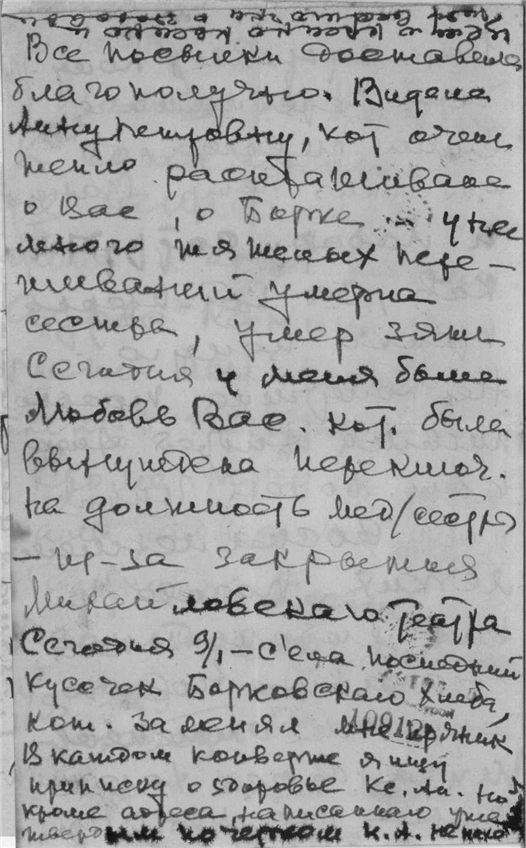 Все посылки доставила
благополучно. Видела
Анну Петровну, кот очень
тепло расспрашивала
о Вас, о Борке ... у нее
много тяжелых пере-
живаний умерла
сестра, умер зять
Сегодня у меня была
Любовь Вас. кот. была
вынуждена переключ.
на должность мед/сестры
- из-за закрытия
Михайловского театра
Сегодня 9/I - съела последний
кусочек Борковского хлеба,
кот. заменял мне пряник
В каждом конверте я ищу
приписку о здоровье Кс. Ан. но
кроме адреса, написанного уже
твердым почерком К. А.